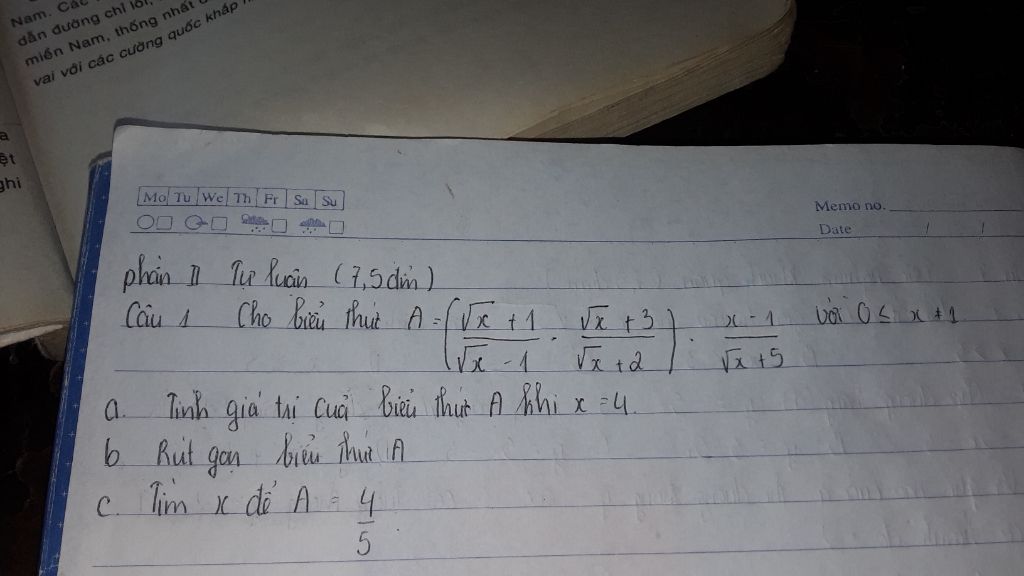 Nam. Các
dẫn đường chỉ lối,
miền Nam, thống nhất
vai với các cường quốc khắp
a
ệt
ghi
Mo Tu We Th Fr Sa Su
Memo no.
Date / /
phần II Tự luận (7,5 đim)
Câu 1 Cho biểu thức A = (√x + 1 / √x - 1 . √x + 3 / √x + 2) . x - 1 / √x + 5 với 0 ≤ x + 1
a. Tính giá trị cuả biểu thức A khi x = 4.
b Rút gọn biểu thức A
c. Tìm x để A = 4/5.